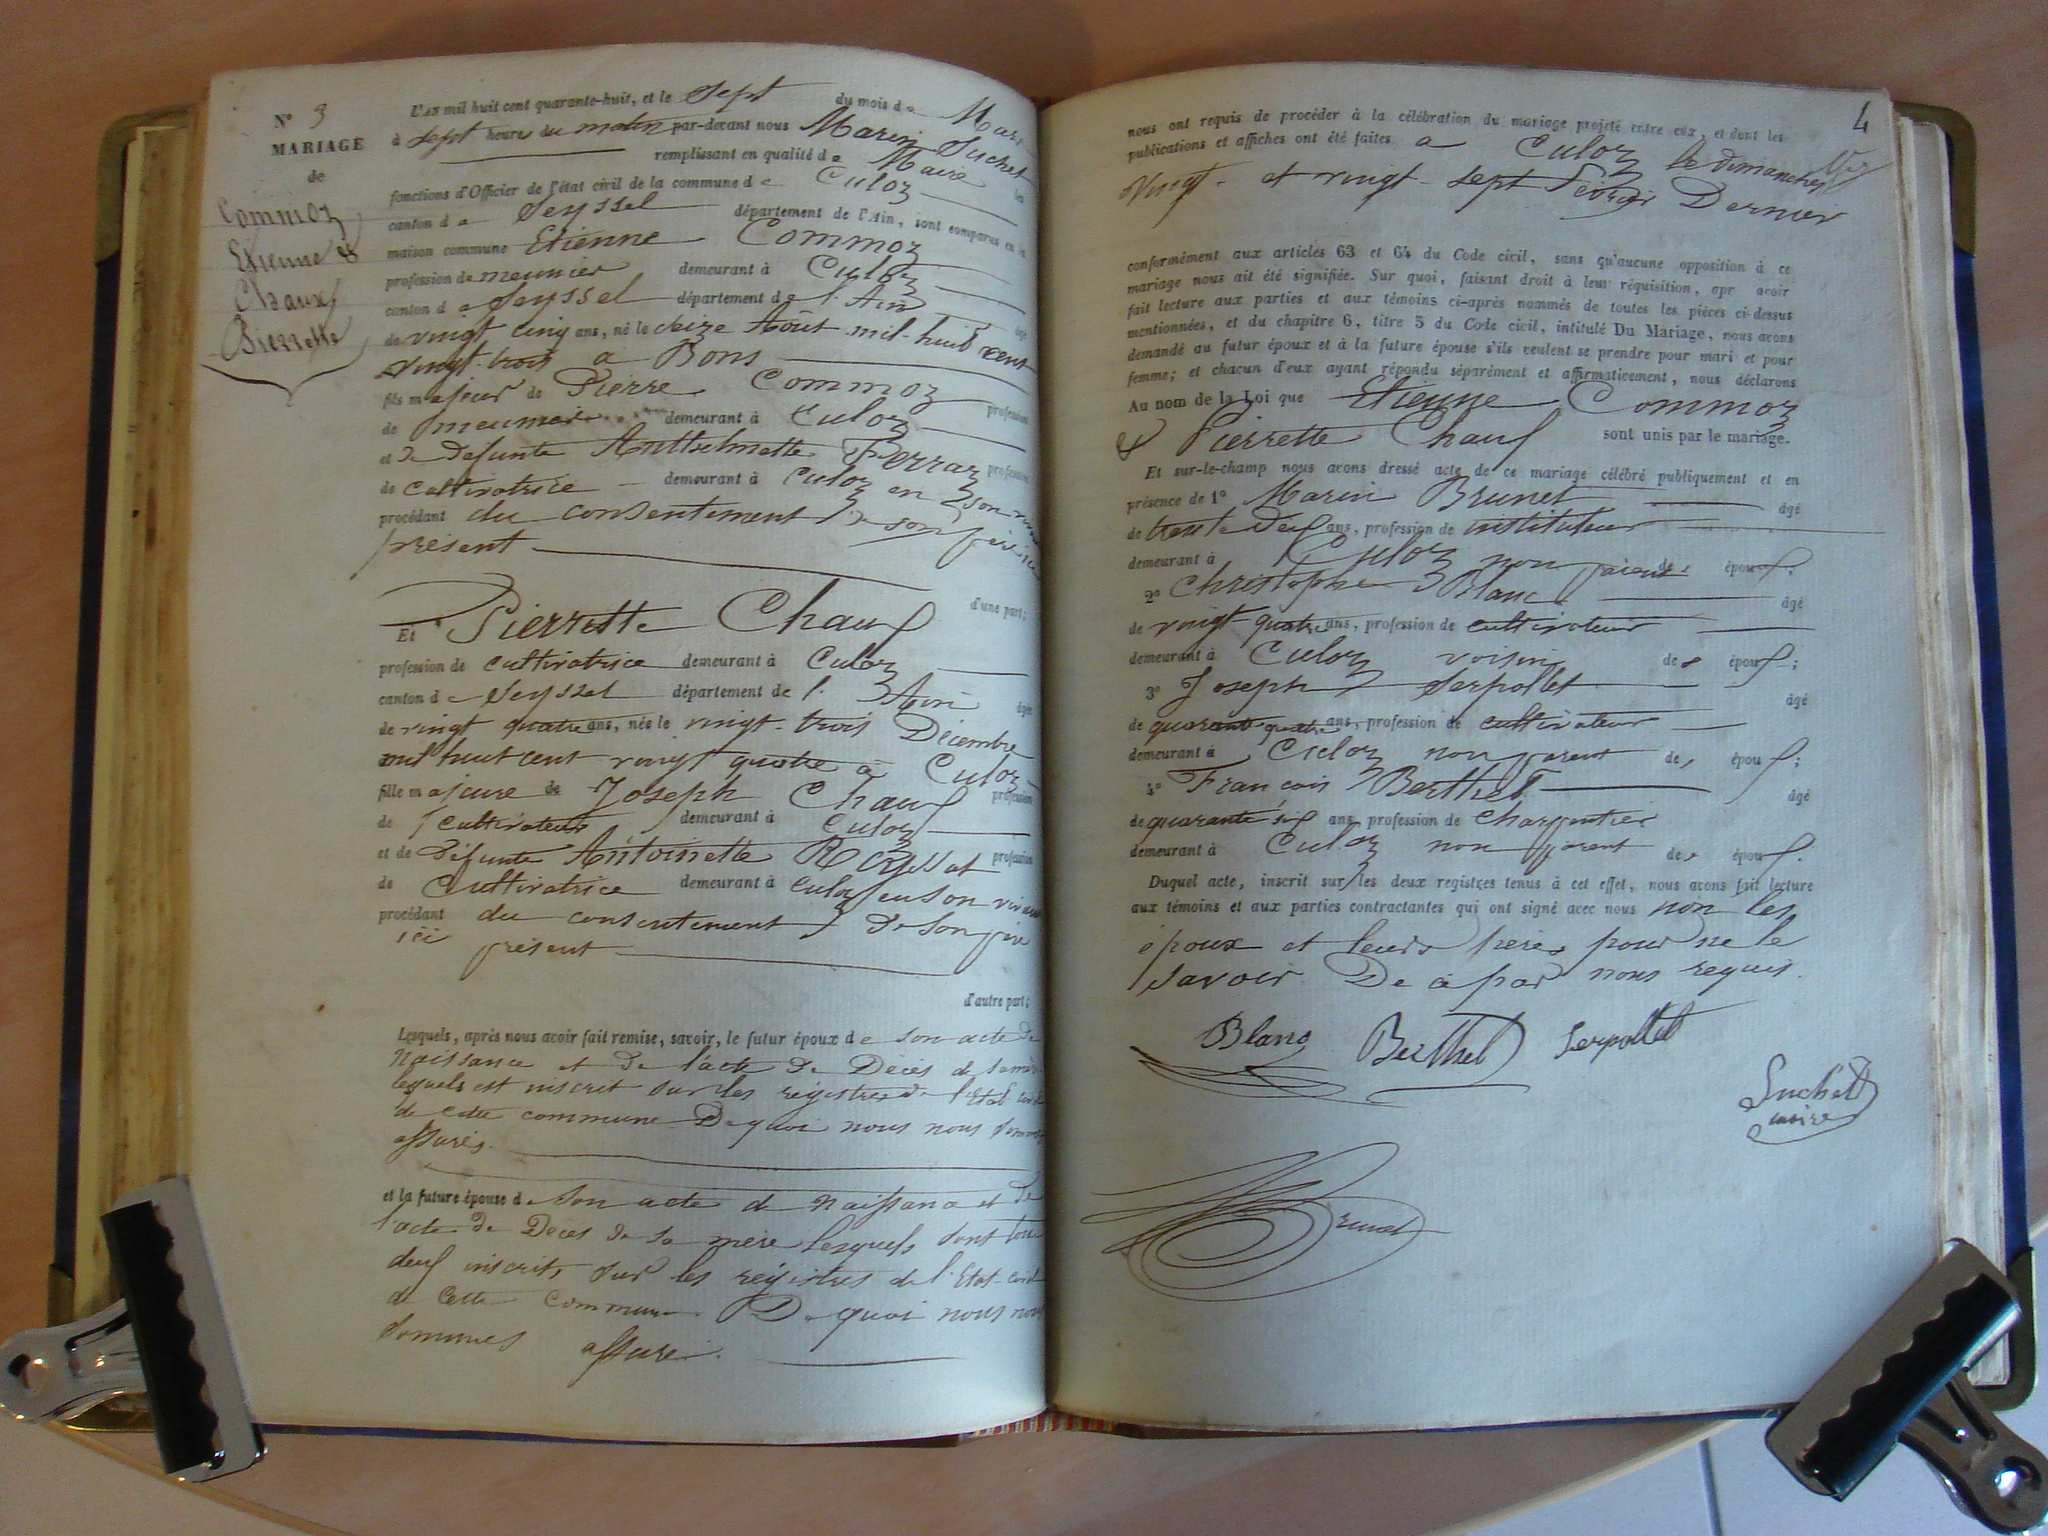 N° 3
MARIAGE
de
Commoz
Etienne &
Chaux
Pierrette
L'AN mil huit cent quarante-huit, et le Sept du mois de Mars
à sept heures du matin par-devant nous Marin Suchet
remplissant en qualité de Maire les
fonctions d'Officier de l'état civil de la commune de Culoz
canton de Seyssel département de l'Ain, sont comparus en la
maison commune Etienne Commoz
profession de meunier demeurant à Culoz
canton de Seyssel département de l'Ain âgé
de vingt cinq ans, né le seize Août mil-huit cent
vingt-trois a Bons
fils majeur de Pierre Commoz profession
de meunier demeurant à Culoz
et de defunte Anthelmette Ferraz profession
de cultivatrice demeurant à Culoz en son vivant
procédant du consentement de son père ici
présent
d'une part;
Et Pierrette Chaux
profession de cultivatrice demeurant à Culoz
canton de Seyssel département de l'Ain âgée
de vingt quatre ans, née le vingt-trois Décembre
mil huit cent vingt quatre à Culoz
fille majeure de Joseph Chaux profession
de cultivateur demeurant à Culoz
et de défunte Antoinette profession
de Cultivatrice demeurant à Culoz en son vivant
procédant du consentement de son père
ici présent
d'autre part;
Lesquels, après nous avoir fait remise, savoir, le futur époux de son acte de
Naissance et de l'acte de Décès de sa mère
lequels est inscrit sur les régistres de l'Etat civil
de cette commune De quoi nous nous sommes
assurés.
et la future épouse de son acte de naissance et de
l'acte de Décès de sa mère lesquels sont tous
deux inscrits sur les régistres de l'Etat-civil
de cette commune. De quoi nous nous
sommes assuré.
4
nous ont requis de procéder à la célébration du mariage projeté entre eux, et dont les
publications et affiches ont été faites a Culoz les dimanches
Vingt et vingt-sept Février Dernier
conformément aux articles 63 et 64 du Code civil, sans qu'aucune opposition à ce
mariage nous ait été signifiée. Sur quoi, faisant droit à leur réquisition, apr avoir
fait lecture aux parties et aux témoins ci-après nommés de toutes les pièces ci-dessus
mentionnées, et du chapitre 6, titre 5 du Code civil, intitulé Du Mariage, nous avons
demandé au futur époux et à la future épouse s'ils veulent se prendre pour mari et pour
femme; et chacun d'eux ayant répondu séparément et affirmativement, nous déclarons
Au nom de la Loi que Etienne Commoz
& Pierrette Chaux sont unis par le mariage.
Et sur-le-champ nous avons dressé acte de ce mariage célébré publiquement et en
présence de 1° Marin Brunet âgé
de trente deux ans, profession de instituteur
demeurant à Culoz non parent des époux;
2° Christophe Blanc âgé
de vingt quatre ans, profession de cultivateur
demeurant à Culoz voisin des époux;
3° Joseph Serpollet âgé
de quarante quatre ans, profession de cultivateur
demeurant à Culoz non parent des époux;
4° François Berthet âgé
de quarante six ans profession de charpentier
demeurant à Culoz non parent des époux.
Duquel acte, inscrit sur les deux registres tenus à cet effet, nous avons fait lecture
aux témoins et aux parties contractantes qui ont signé avec nous non les
époux et leurs pères pour ne le
savoir De ce par nous requis.
Blanc Berthet Serpollet
Suchet
maire
Brunet